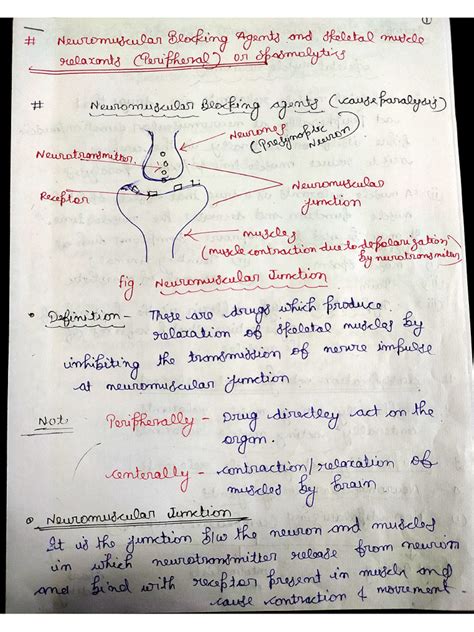 ①
# Neuromuscular Blocking Agents and skeletal muscle
relaxants (Peripheral) or spasmolytics
# Neuromuscular Blocking agents (cause paralysis)
Neurones
(Presynoptic
Neuron)
Neurotransmitter
Neuromuscular
junction
Receptor
muscles
(muscle contraction due to depolarization
by neurotransmitter
fig. Neuromuscular Junction
• Definition - These are drugs which produce
relaxation of skeletal muscles by
inhibiting the transmission of nerve impulse
at neuromuscular junction
Not:
Peripherally - Drug directley act on the
organ.
centerally - contraction/relaxation of
muscles by brain
• Neuromuscular Junction
It is the junction b/w the neuron and muscles
in which neurotransmitter release from neuron
and bind with receptor present in muscle and
cause contraction & movement.